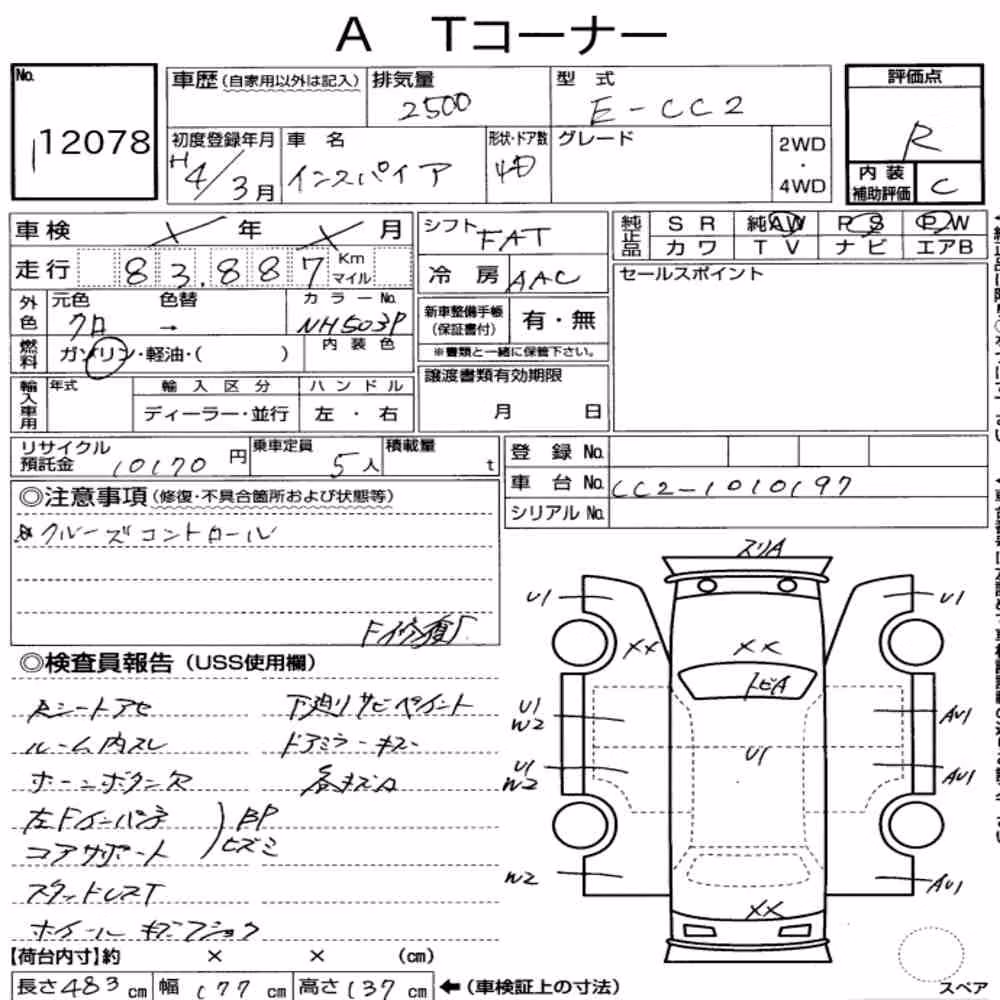 A Tコーナー
No.
12078
車歴(自家用以外は記入)
排気量
2500
型式
E-CC2
評価点
R
初度登録年月
H4/3月
車名
インスパイア
形状・ドア数
4D
グレード
2WD
・
4WD
内装
補助評価
C
車検 × 年 × 月
シフト
FAT
純正品
SR
純AW
PS
PW
カワ
TV
ナビ
エアB
走行
83,887
Km
マイル
冷房
AAC
セールスポイント
外色
元色
クロ
色替
→
カラーNo.
NH503P
新車整備手帳
(保証書付)
有・無
燃料
ガソリン・軽油・( )
内装色
※書類と一緒に保管下さい。
輸入車用
年式
輸入区分
ハンドル
ディーラー・並行
左・右
譲渡書類有効期限
月 日
リサイクル
預託金
10170円
乗車定員
5人
積載量
t
登録No.
車台No.
CC2-1010197
シリアルNo.
◎注意事項(修復・不具合箇所および状態等)
クルーズコントロール
F修復
◎検査員報告(USS使用欄)
シートアセ
下廻りサビペイント
ルーム内スレ
ドアミラーキズ
ホーンボタン欠
各キズA
左Fインパネ
コアサポート
BP
ヒズミ
スタッドレスT
ホイール
スリA
U1
U1
××
××
トビA
U1
W2
U1
W2
U1
AU1
AU1
W2
AU1
××
スペア
【荷台内寸】約 × × (cm)
長さ483cm
幅177cm
高さ137cm
←(車検証上の寸法)